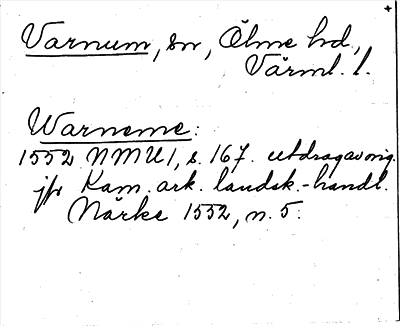 Varnum, sn, Ölme hd.,
Värml. l.
Warneme:
1552 NMU 1, s. 167. utdrag av orig.
jfr Kam. ark. landsk.-handl.
Närke 1552, n. 5.